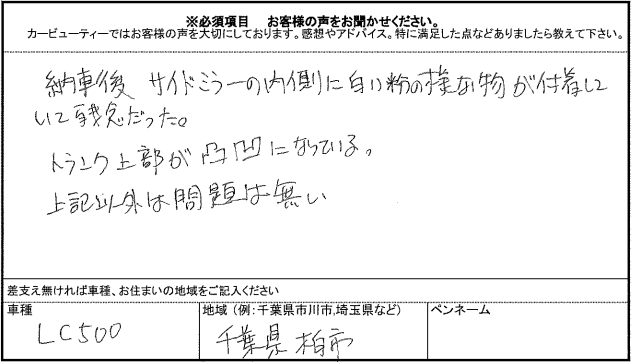 ※必須項目　お客様の声をお聞かせください。
カービューティーではお客様の声を大切にしております。感想やアドバイス。特に満足した点などありましたら教えて下さい。
納車後 サイドミラーの内側に白い粉の様な物が付着して
いて残念だった。
トランク上部が凸凹になっている。
上記以外は問題は無い
差支え無ければ車種、お住まいの地域をご記入ください
車種
地域（例:千葉県市川市,埼玉県など）
ペンネーム
LC500
千葉県 柏市